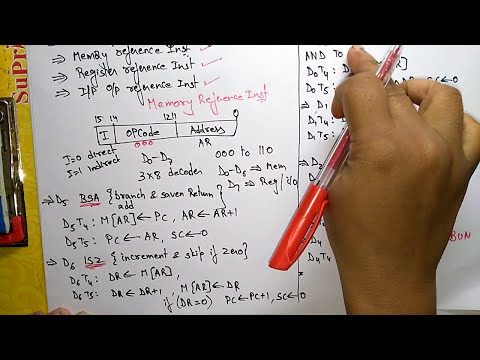 SuPr
⇒ Memory reference Inst ✓
⇒ Register reference Inst ✓
⇒ I/p o/p reference Inst ✓
Memory Reference Inst
15 14 12 11 0
I OPCode Address
000 AR
I=0 direct
I=1 indirect
D0-D7
3x8 decoder
000 to 110
D0-D6 ⇒ Mem
D7 ⇒ Reg / i/o
⇒ D5 BSA {branch & save Return add}
D5T4: M[AR] ← PC, AR ← AR+1
D5T5: PC ← AR, SC ← 0
⇒ D6 ISZ {increment & skip if zero}
D6T4: DR ← M[AR],
D6T5: DR ← DR+1, M[AR] ← DR
if (DR=0) PC ← PC+1, SC ← 0
AND TO
D0T4:
D0T5
SC ← 0
⇒ D1
D1T4:
D1T5:
BUN
D4T4